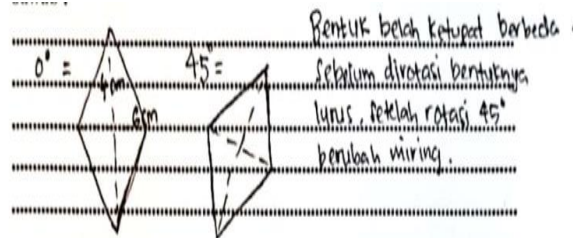 Bentuk belah ketupat berbeda.
0° =
45° =
Sebelum dirotasi bentuknya
4 cm
lurus, setelah rotasi 45°
6 cm
berubah miring.